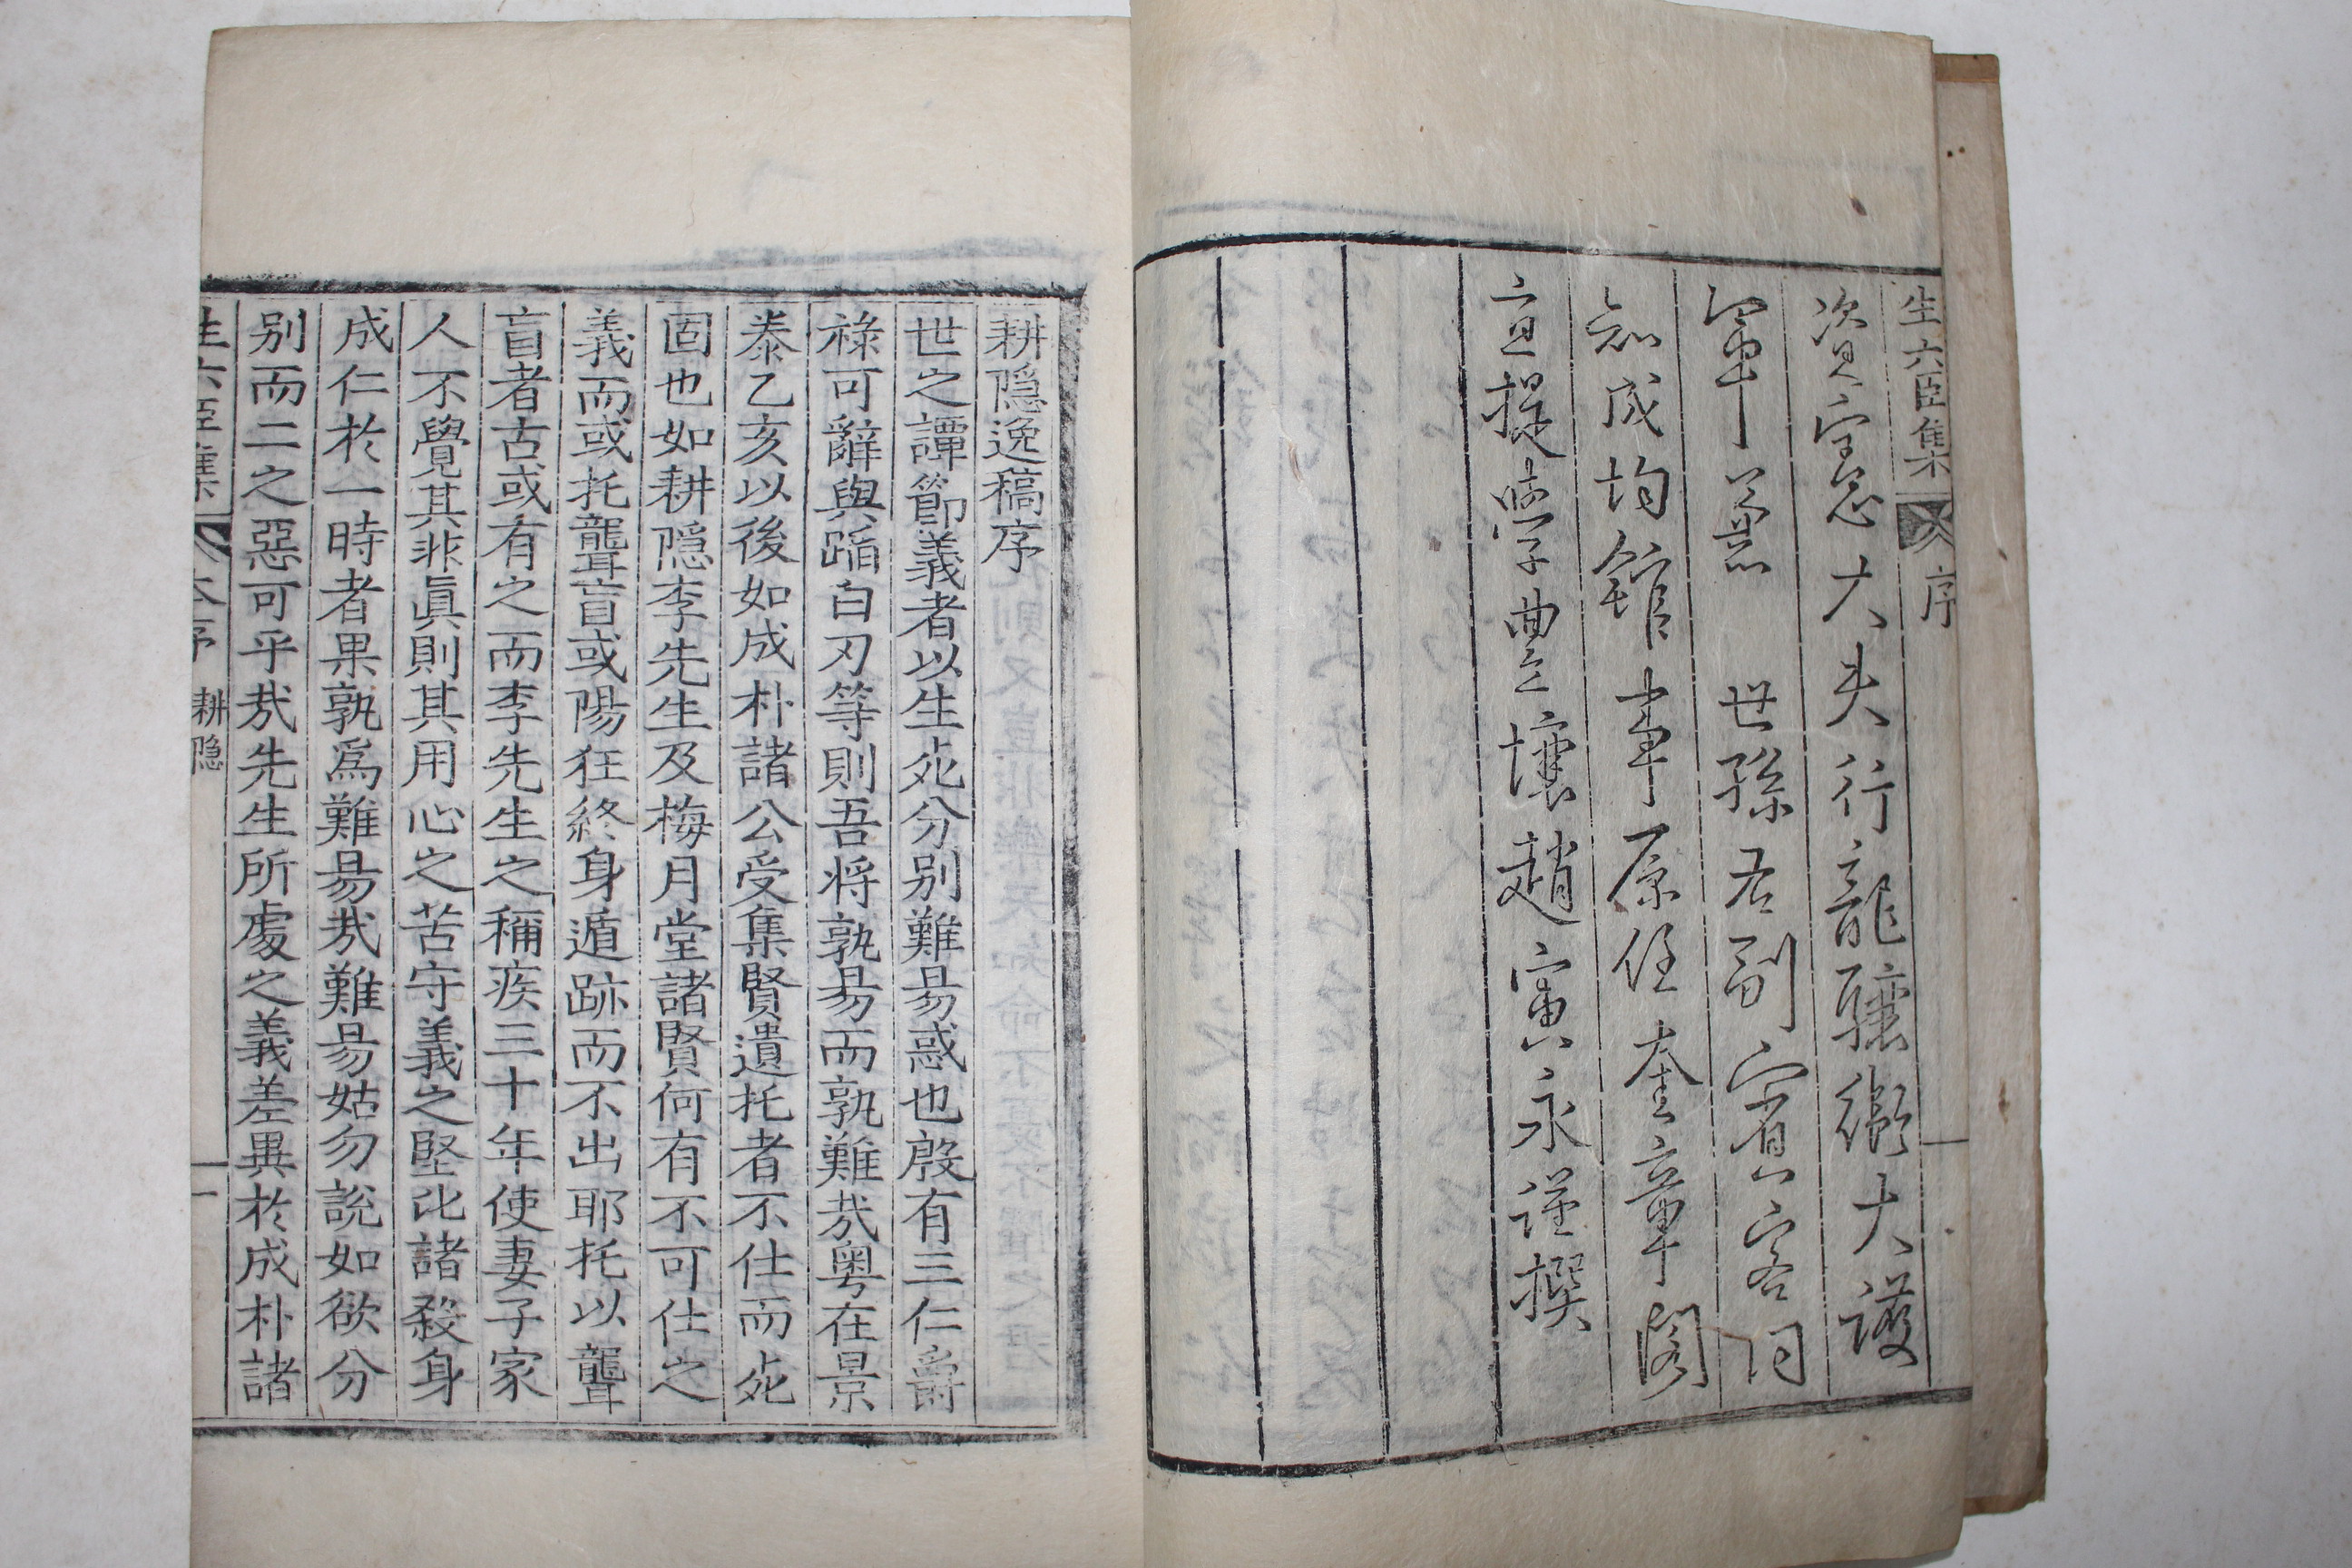 生六臣集 序
資憲大夫行龍驤衛大護
軍兼 世孫右副賓客同
知成均館事原任奎章閣
直提學豊壤趙寅永謹撰
耕隠逸稿序
世之譚節義者以生死分別難易惑也殷有三仁爵
祿可辭與蹈白刃等則吾將孰易而孰難㢤粤在景
泰乙亥以後如成朴諸公受集賢遺托者不仕而死
固也如耕隠李先生及梅月堂諸賢何有不可仕之
義而或托聾盲或陽狂終身遁跡而不出耶托以聾
盲者古或有之而李先生之稱疾三十年使妻子家
人不覺其非眞則其用心之苦守義之堅比諸殺身
成仁於一時者果孰爲難易㢤難易姑勿說如欲分
別而二之惡可乎㢤先生所處之義差異於成朴諸
生六臣集 序 耕隠 一